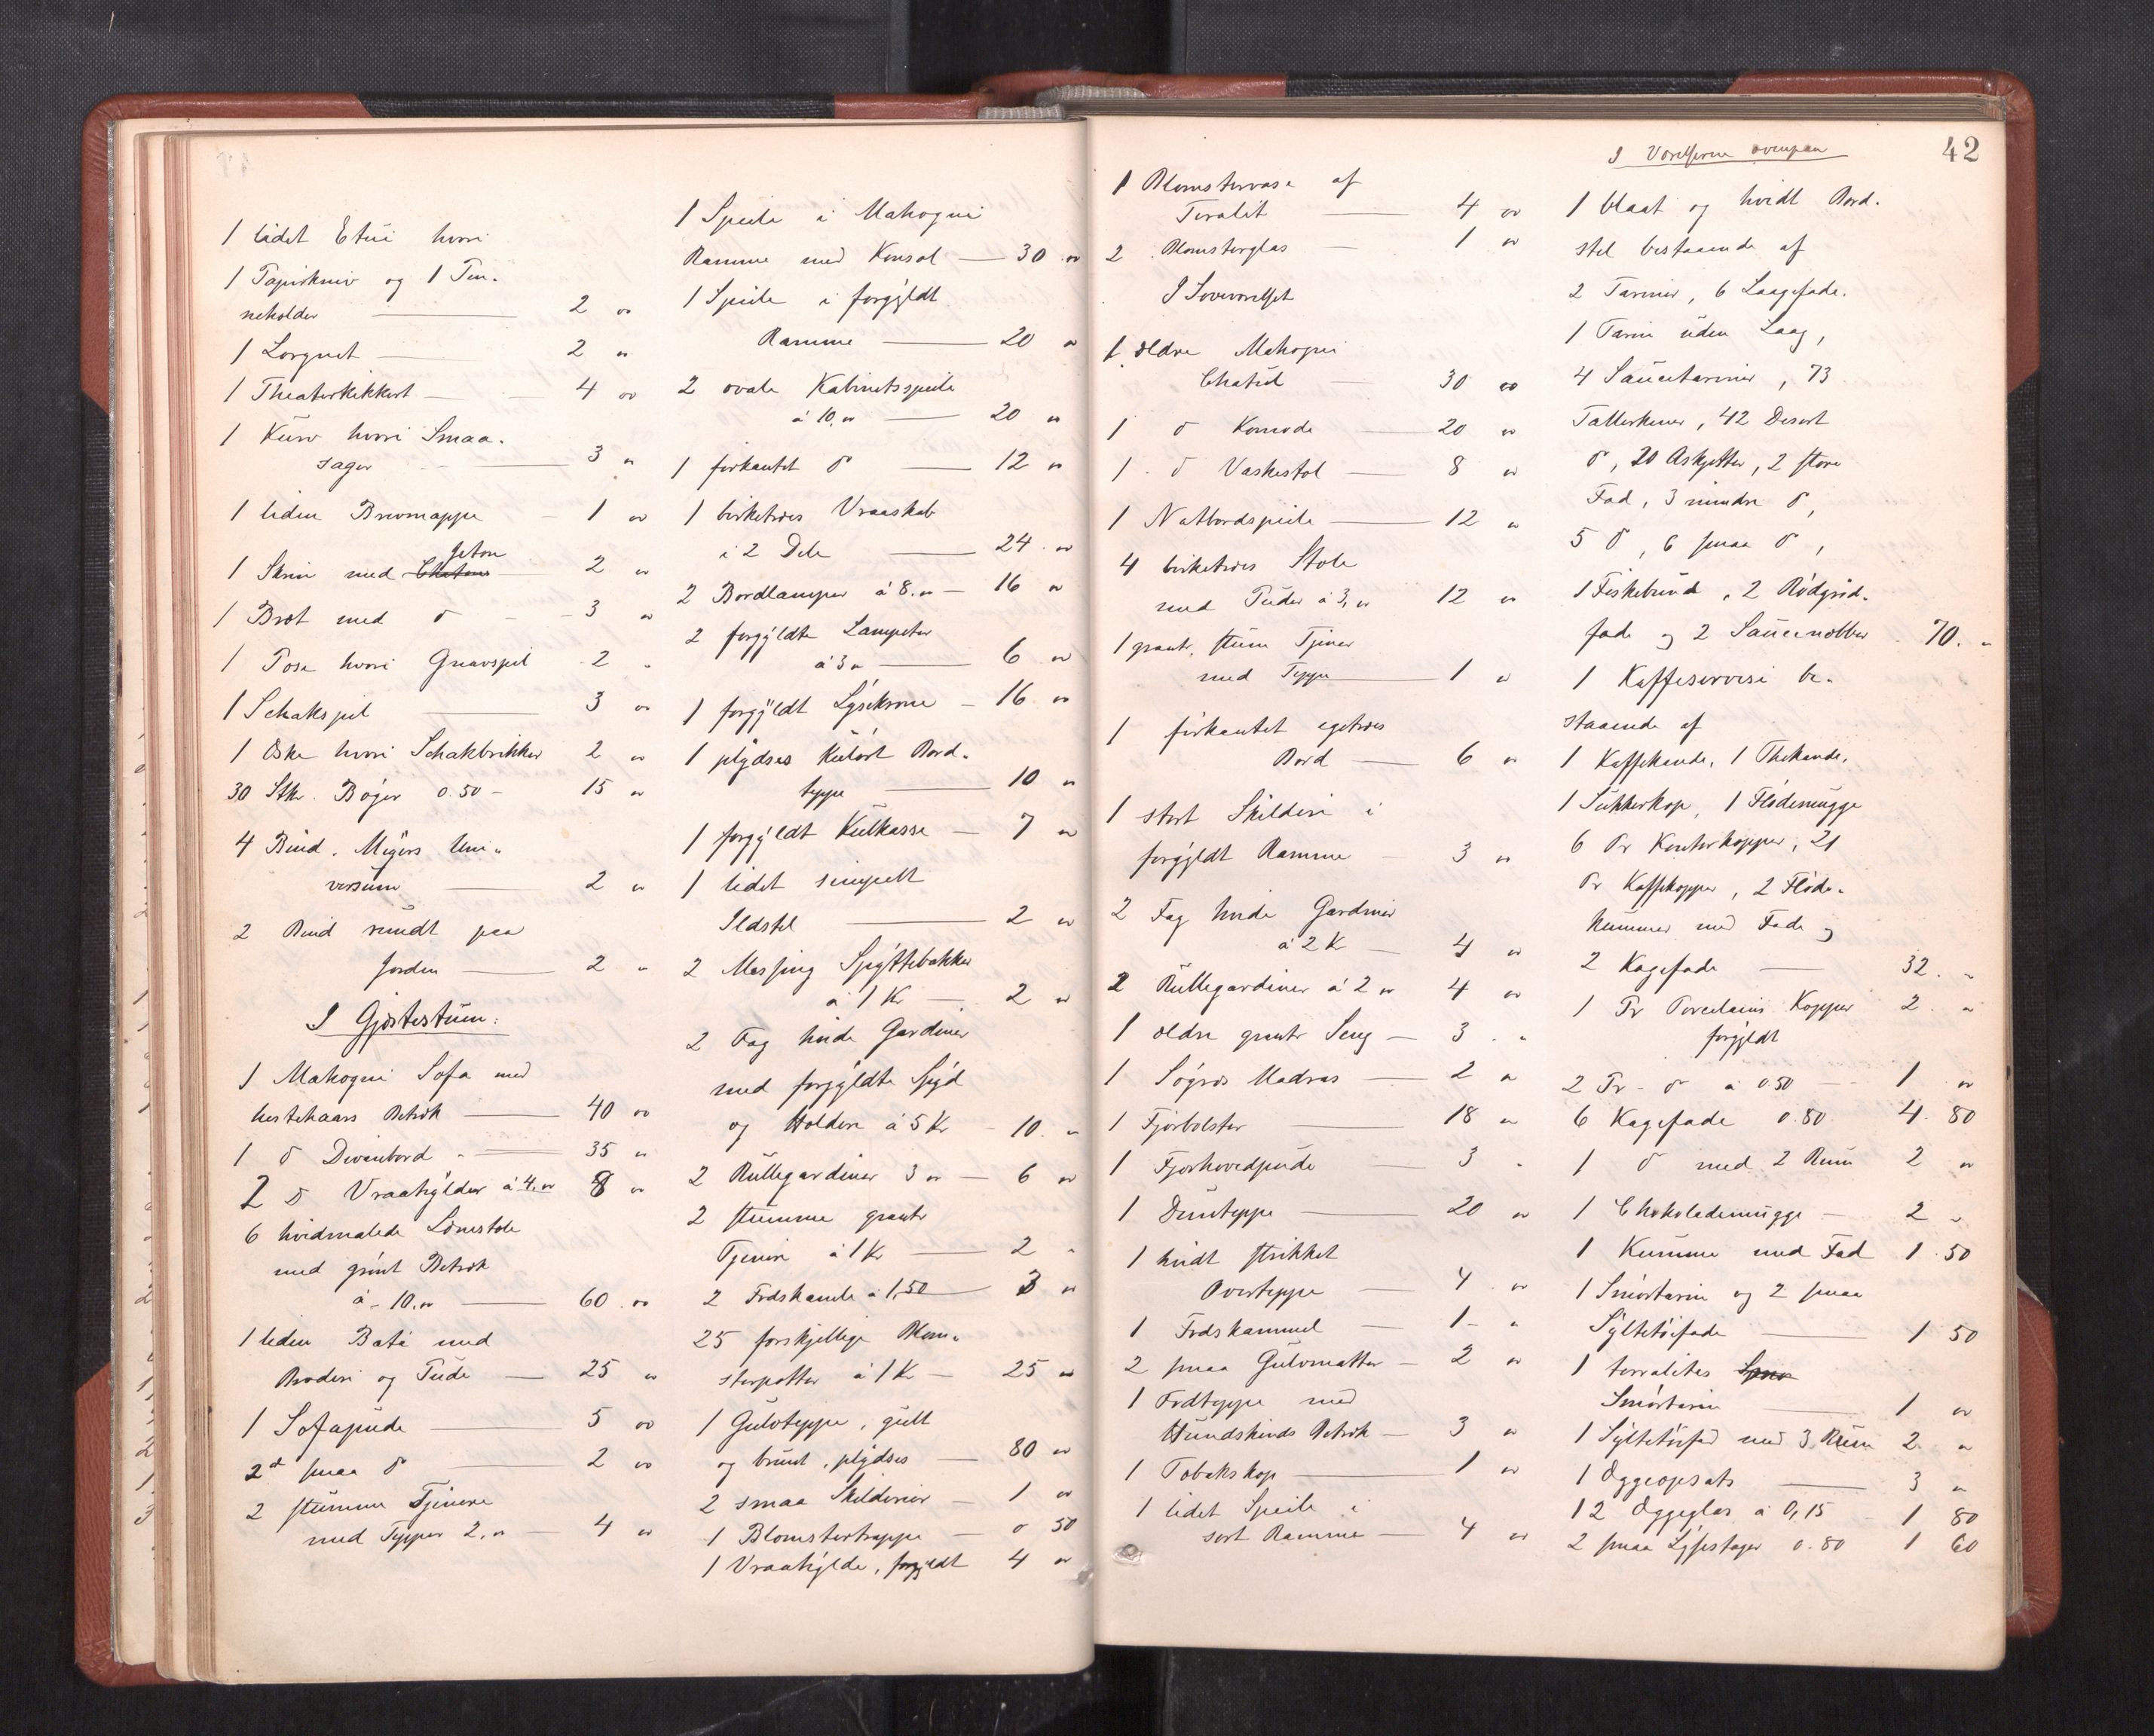 1 lidet Etui hvori
1 Papirkniv og 1 Pen-
neholder — 2 "
1 Lorgnet — 2 "
1 Theaterkikkert — 4 "
1 Kurv hvori Smaa-
sager — 3 "
1 liden Brevmappe - 1 "
Jeton
1 Skrin med 2 "
1 Bræt med do - 3 "
1 Pose hvori Gnavspil 2 "
1 Schakspil — 3 "
1 Æske hvori Schakbrikker 2 "
30 Stkr. Bøger 0.50 - 15 "
4 Bind. Meyers Uni-
versum — 2 "
2 Bind rundt paa
Jorden — 2 "
I Gjæstestuen:
1 Mahogni Sofa med
hestehaars Betræk — 40 "
1 do Divanbord — 35 "
2 do Vraahylder à 4." 8 "
6 hvidmalede Lænestole
med grønt Betræk
à - 10." — 60 "
1 liden med
Broderi og Pude — 25 "
1 Sofapude — 5 "
2 smaa do — 2 "
2 stumme Tjenere
med Tepper 2." — 4 "
1 Speile i Mahogni
Ramme med Konsol — 30 "
1 Speile i forgyldt
Ramme — 20 "
2 ovale Kabinetsspeile
à 10." — 20 "
1 firkantet do — 12 "
1 birketræes Vraaskab
i 2 Dele — 24 "
2 Bordlamper à 8." — 16 "
2 forgyldte Lampetter
à 3 " — 6 "
1 forgyldt Lysekrone — 16 "
1 plydses kulørt Bord-
teppe — 10 "
1 forgyldt Kulkasse — 7 "
1 lidet simpelt
Ildstel — 2 "
2 Messing Spyttebakker
à 1 Kr — 2 "
2 Fag hvide Gardiner
med forgyldte Spyd
og Holdere à 5 Kr - 10. "
2 Rullegardiner 3 " — 6 "
2 stumme
Tjenere à 1 Kr — 2 "
2 Fodskamle à 1,50 — 3 "
25 forskjellige Blom-
sterpotter à 1 Kr — 25 "
1 Gulvteppe, gult
og brunt, plydses — 80 "
2 smaa Skilderier — 1 "
1 Blomstertrappe — 0 50
1 Vraahylde, forgyldt 4 "
42
1 Blomstervase af
Teralit — 4 "
2 Blomsterglas — 1 "
I Soveværelset
1 ældre Mahogni
Chatul 30 "
1 do Komode — 20 "
1 do Vaskestol — 8 "
1 Natbordspeile — 12 "
4 birketræes Stole
med Puder à 3," 12 "
1 stum Tjener
med Teppe — 1 "
1 firkantet egetræes
Bord — 6 "
1 stort Skilderi i
forgyldt Ramme — 3 "
2 Fag hvide Gardiner
à 2 Kr — 4 "
2 Rullegardiner à 2 " 4 "
1 ældre Seng — 3 "
1 Søgræs Madras — 2 "
1 Fjærbolster — 18 "
1 Fjærhovedpude — 3 "
1 Dunteppe — 20 "
1 hvidt strikket
Overteppe — 4 "
1 Fodskammel — 1 "
2 smaa Gulvmatter — 2 "
1 Fodteppe med
Hundskinds Betræk — 3 "
1 Tobakskop — 1 "
1 lidet Speile i
sort Ramme — 4 "
I Værelserne ovenpaa
1 blaat og hvidt Bord-
stel bestaaende af
2 Tariner, 6 Laagefade.
1 Tarin uden Laag,
4 Saucetariner, 73
Tallerkener, 42 Desert
do, 20 Asketter, 2 store
Fad, 3 mindre do,
5 do, 6 smaa do,
1 Fiskebund, 2 Rødgrød-
fade og 2 Saucenebber 70. "
1 Kaffeservise be-
staaende af
1 Kaffekande, 1 Thekande,
1 Sukkerkop, 1 Flødemugge
6 Pr Kontorkopper, 21
Pr Kaffekopper, 2 Fløde-
kummer med Fade og
2 Kagefade — 32. "
1 Pr Porcelains Kopper 2. "
forgyldt
2 Pr - do à 0.50 — 1 "
6 Kagefade 0.80 4. 80
1 do med 2 Rum 2 "
1 Chokolademugge — 2 "
1 Kumme med Fad 1. 50
1 Smørtarin og 2 smaa
Syltetøifade — 1 50
1 terralites
Smørtarin — 1 "
1 Syltetøifad med 3 Rum 2. "
1 Æggeopsats — 3 "
12 Æggeglas à 0,15 1 80
2 smaa Lysestager 0.80 1 60